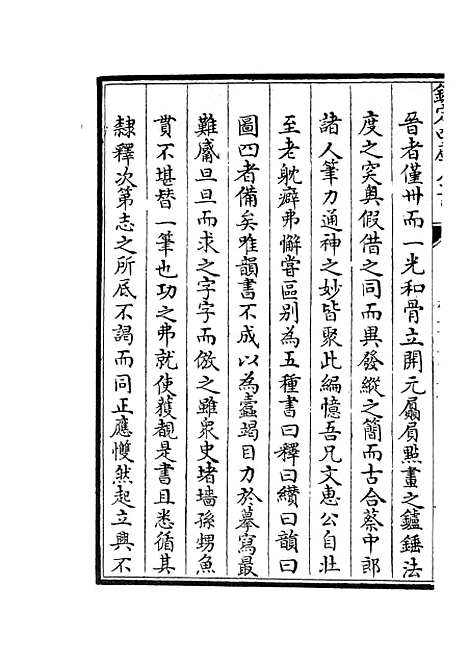 欽定四庫全書
晉者僅卅而一光和骨立開元羸屓點畫之鑪錘法
度之窔奧假借之同而異發縱之簡而古合蔡中郎
諸人筆力通神之妙皆聚此編憶吾兄文惠公自壯
至老躭癖弗懈嘗區别為五種書曰釋曰纘曰韻曰
圖四者備矣唯韻書不成以為蠹竭目力於摹寫最
難廬旦旦而求之字字而倣之雖衆史堵墻孫甥魚
貫不堪替一筆也功之弗就使獲覩是書且悉循其
隸釋次第志之所底不謁而同正應懽然起立興不